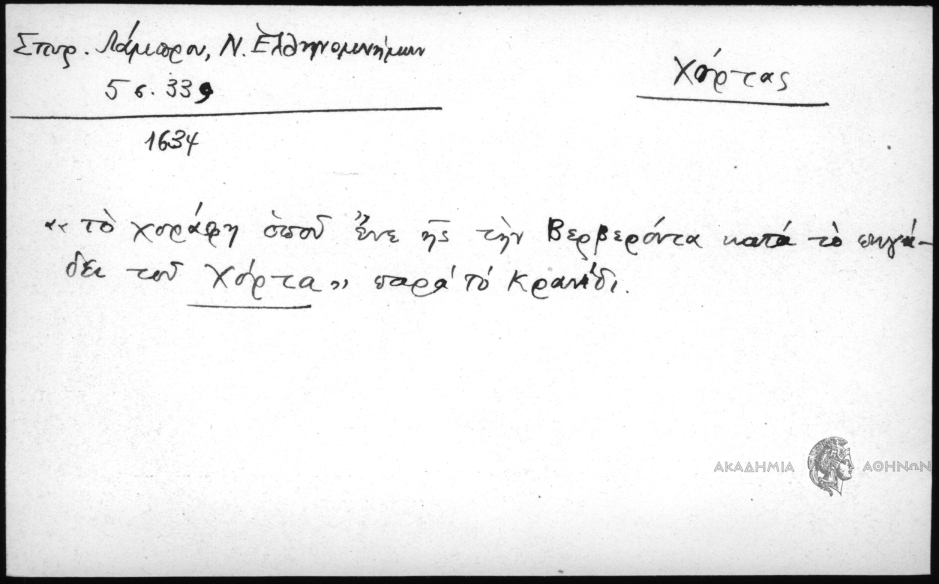 Σπυρ. Λάμπρου, Ν. Ἑλληνομνήμων
5 σ. 339
Χόρτας
1634
«τὸ χοράφη ὁποῦ ἔνε ῆς τὴν Βερβερόντα κατὰ τὸ πηγά-
δει τοῦ Χόρτα» παρά τό Κρανίδι.
ΑΚΑΔΗΜΙΑ ΑΘΗΝΩΝ